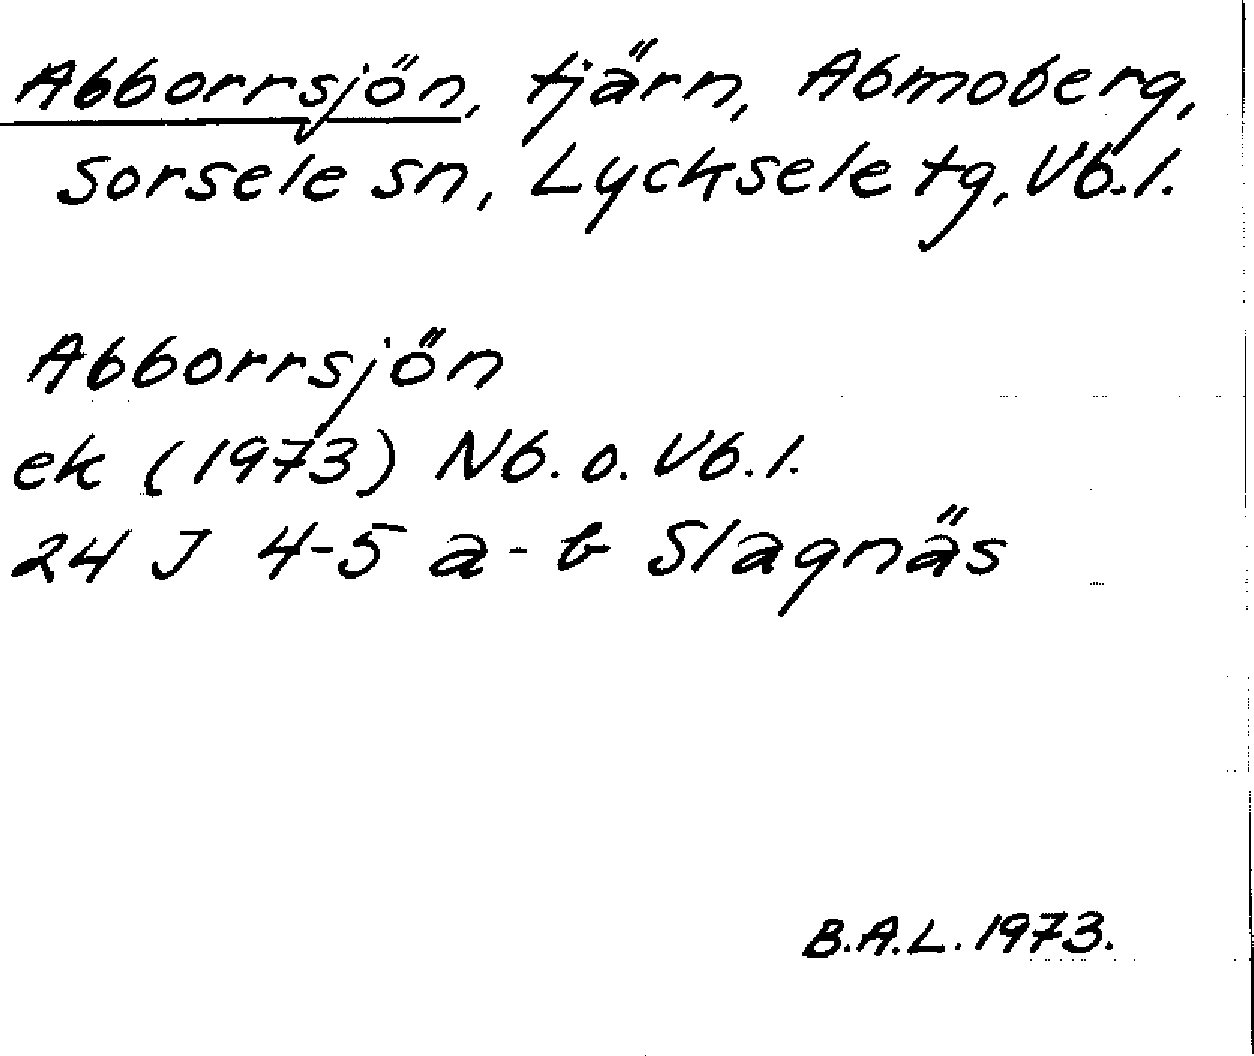 Abborrsjön, tjärn, Abmoberg,
Sorsele sn, Lycksele tg, Vb. l.
Abborrsjön
ek (1973) Nb. o. Vb. l.
24 J 4-5 a-b Slagnäs
B.A.L. 1973.